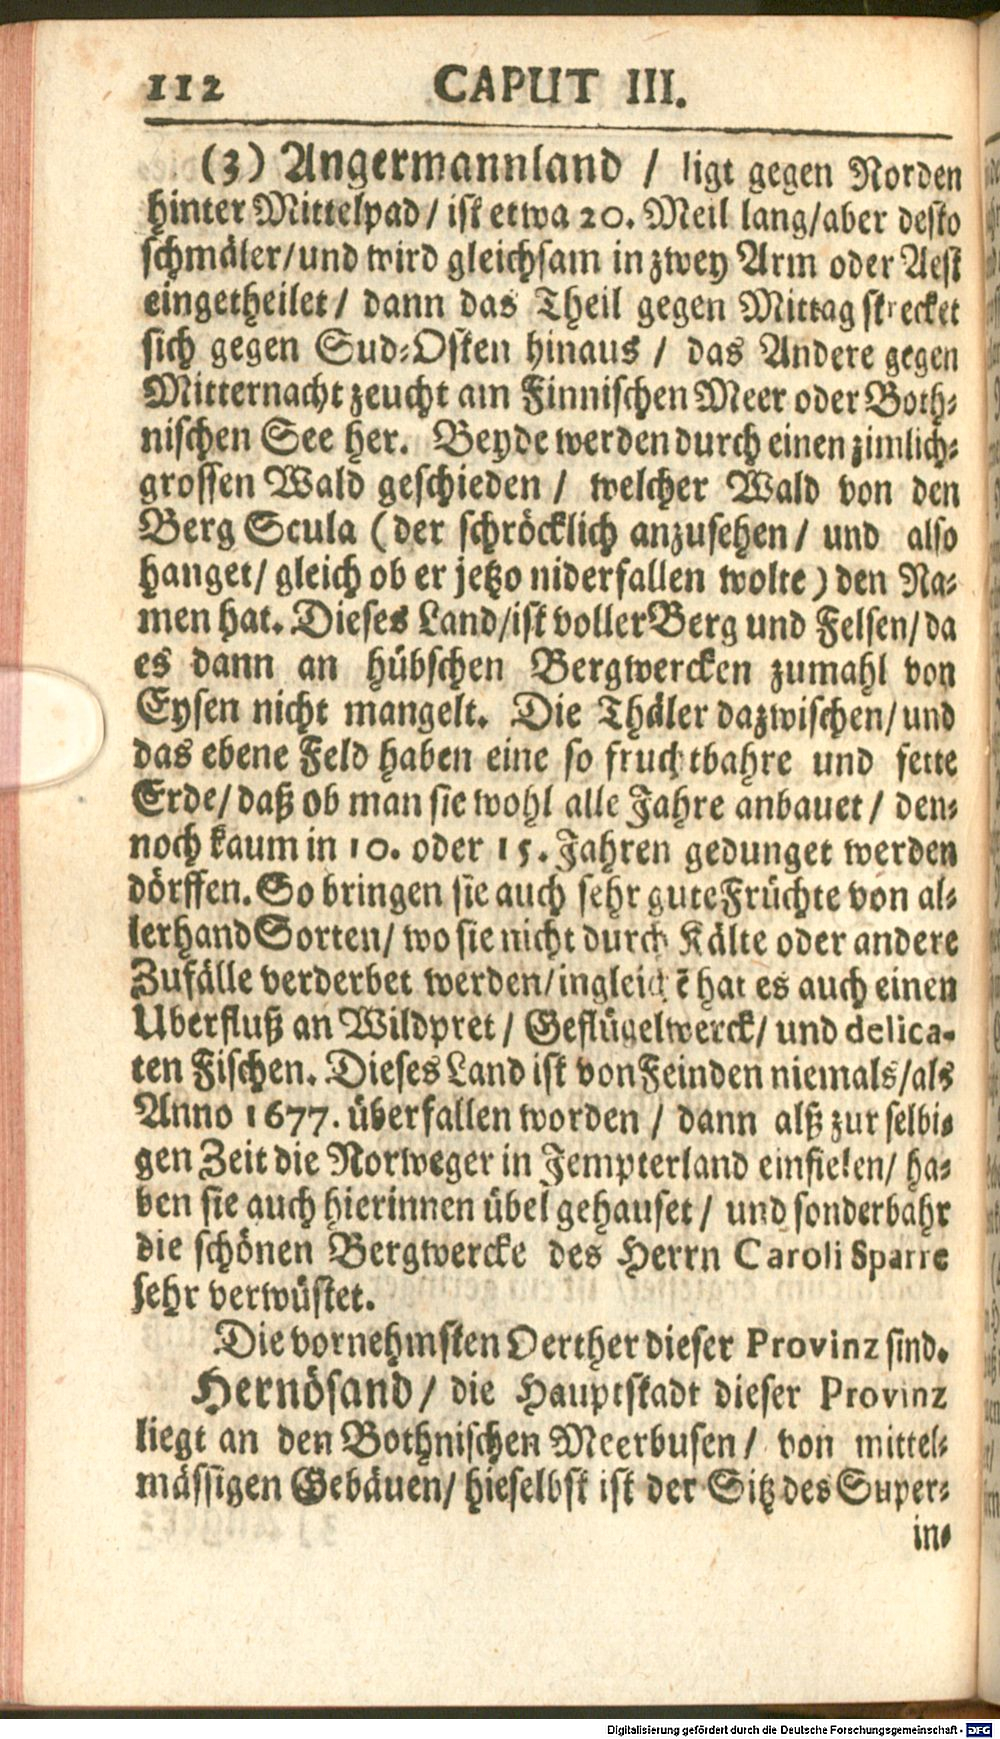 112 CAPUT III.
(3) Angermannland / ligt gegen Norden
hinter Mittelpad / ist etwa 20. Meil lang/aber desto
schmäler/und wird gleichsam in zwey Arm oder Aest
eingetheilet / dann das Theil gegen Mittag strecket
sich gegen Sud-Osten hinaus / das Andere gegen
Mitternacht zeucht am Finnischen Meer oder Both-
nischen See her. Beyde werden durch einen zimlich-
grossen Wald geschieden / welcher Wald von den
Berg Scula (der schröcklich anzusehen / und also
hanget/ gleich ob er jetzo niderfallen wolte) den Na-
men hat. Dieses Land/ist voller Berg und Felsen/ da
es dann an hübschen Bergwercken zumahl von
Eysen nicht mangelt. Die Thäler dazwischen/ und
das ebene Feld haben eine so fruchtbahre und fette
Erde/ daß ob man sie wohl alle Jahre anbauet / den-
noch kaum in 10. oder 15. Jahren gedunget werden
dörffen. So bringen sie auch sehr gute Früchte von al-
lerhand Sorten/ wo sie nicht durch Kälte oder andere
Zufälle verderbet werden/ingleichẽ hat es auch einen
Uberfluß an Wildpret / Geflügelwerck/ und delica-
ten Fischen. Dieses Land ist von Feinden niemals/als
Anno 1677. überfallen worden / dann alß zur selbi-
gen Zeit die Norweger in Jempterland einfielen/ ha-
ben sie auch hierinnen übel gehauset / und sonderbahr
die schönen Bergwercke des Herrn Caroli Sparre
sehr verwüstet.
Die vornehmsten Oerther dieser Provinz sind.
Hernösand / die Hauptstadt dieser Provinz
liegt an den Bothnischen Meerbusen / von mittel-
mässigen Gebäuen/ hieselbst ist der Sitz des Super-
in-
Digitalisierung gefördert durch die Deutsche Forschungsgemeinschaft - DFG